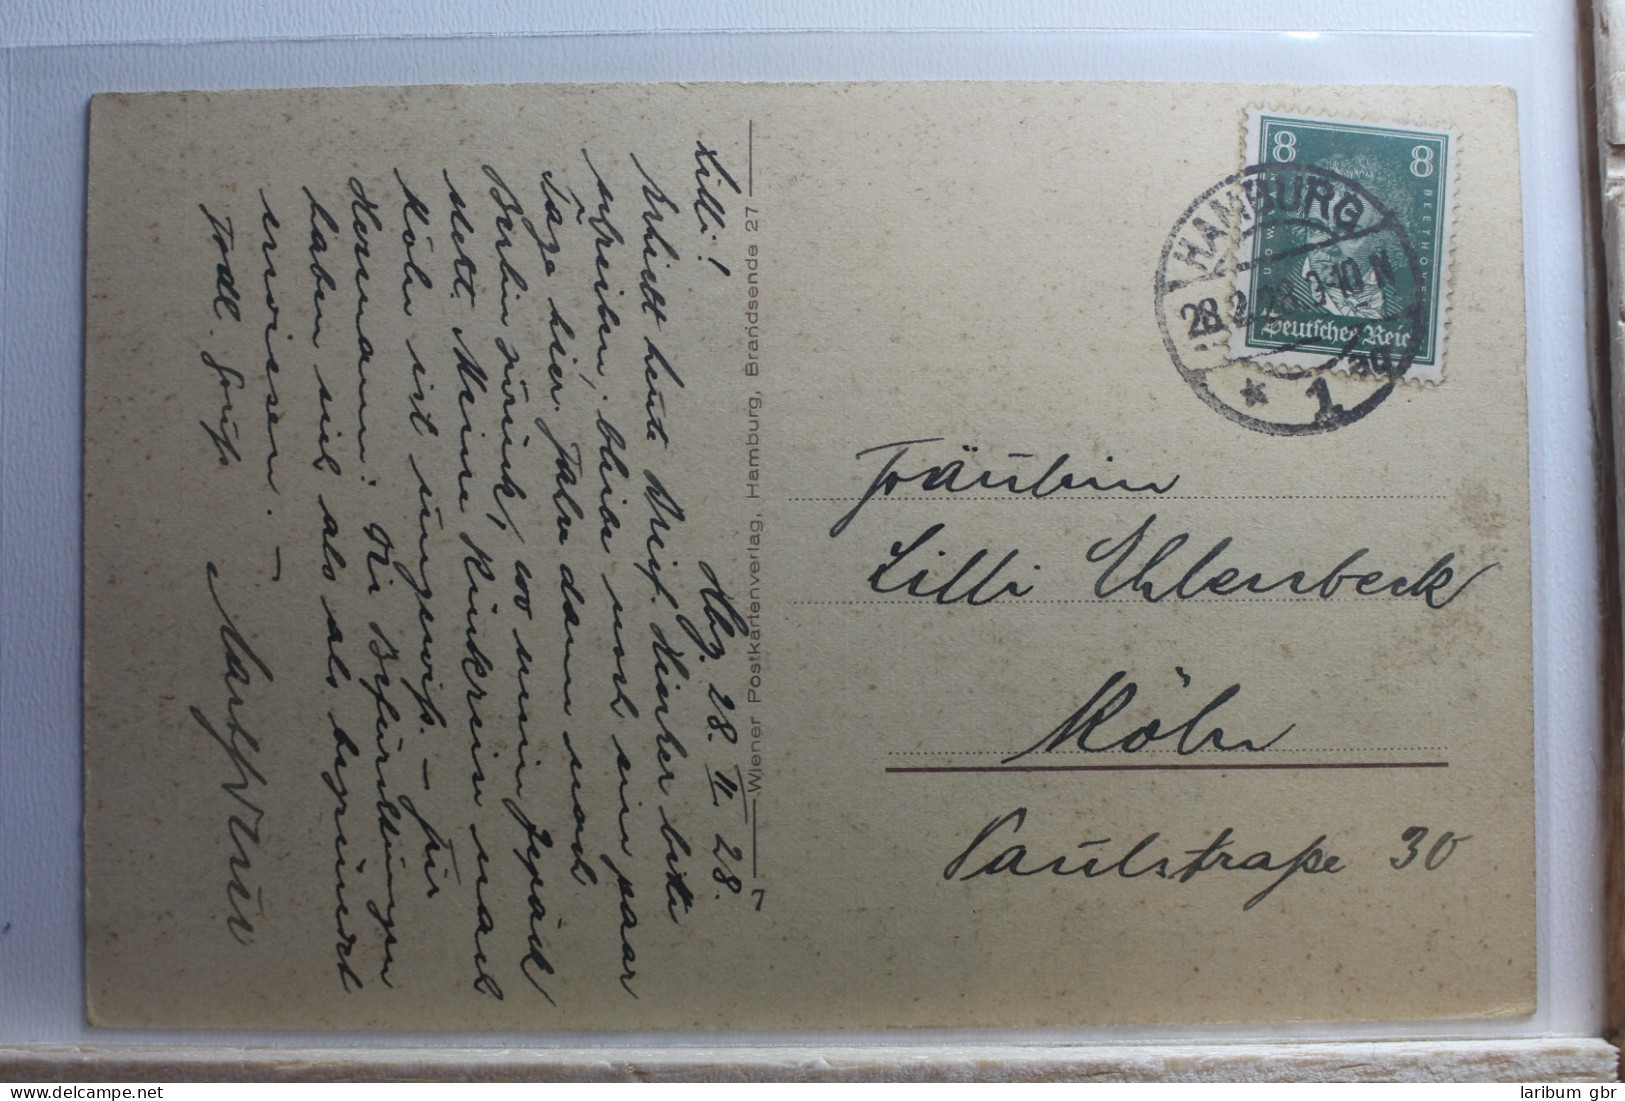 Hbg. 28. II. 28.
Lilli!
Erhielt heute Brief. Hierher bitte
schreiben, bleibe noch ein paar
Tage hier. Fahre dann nach
Berlin zurück, wo mein Gepäck
steht. Meine Rückreise nach
Köln ist ungewiß. – Für
Hermann: Die Befürchtungen
haben sich als als begründet
erwiesen. –
Frdl. Gruß
Wiener Postkartenverlag, Hamburg, Brandsende 27
7
8 8
LUDWIG VAN BEETHOVEN
Deutsches Reich
HAMBURG
28.2.28. 9-10 N
* 1
Fräulein
Lilli Ehlenbeck
Köln
Paulstraße 30
laribum gbr